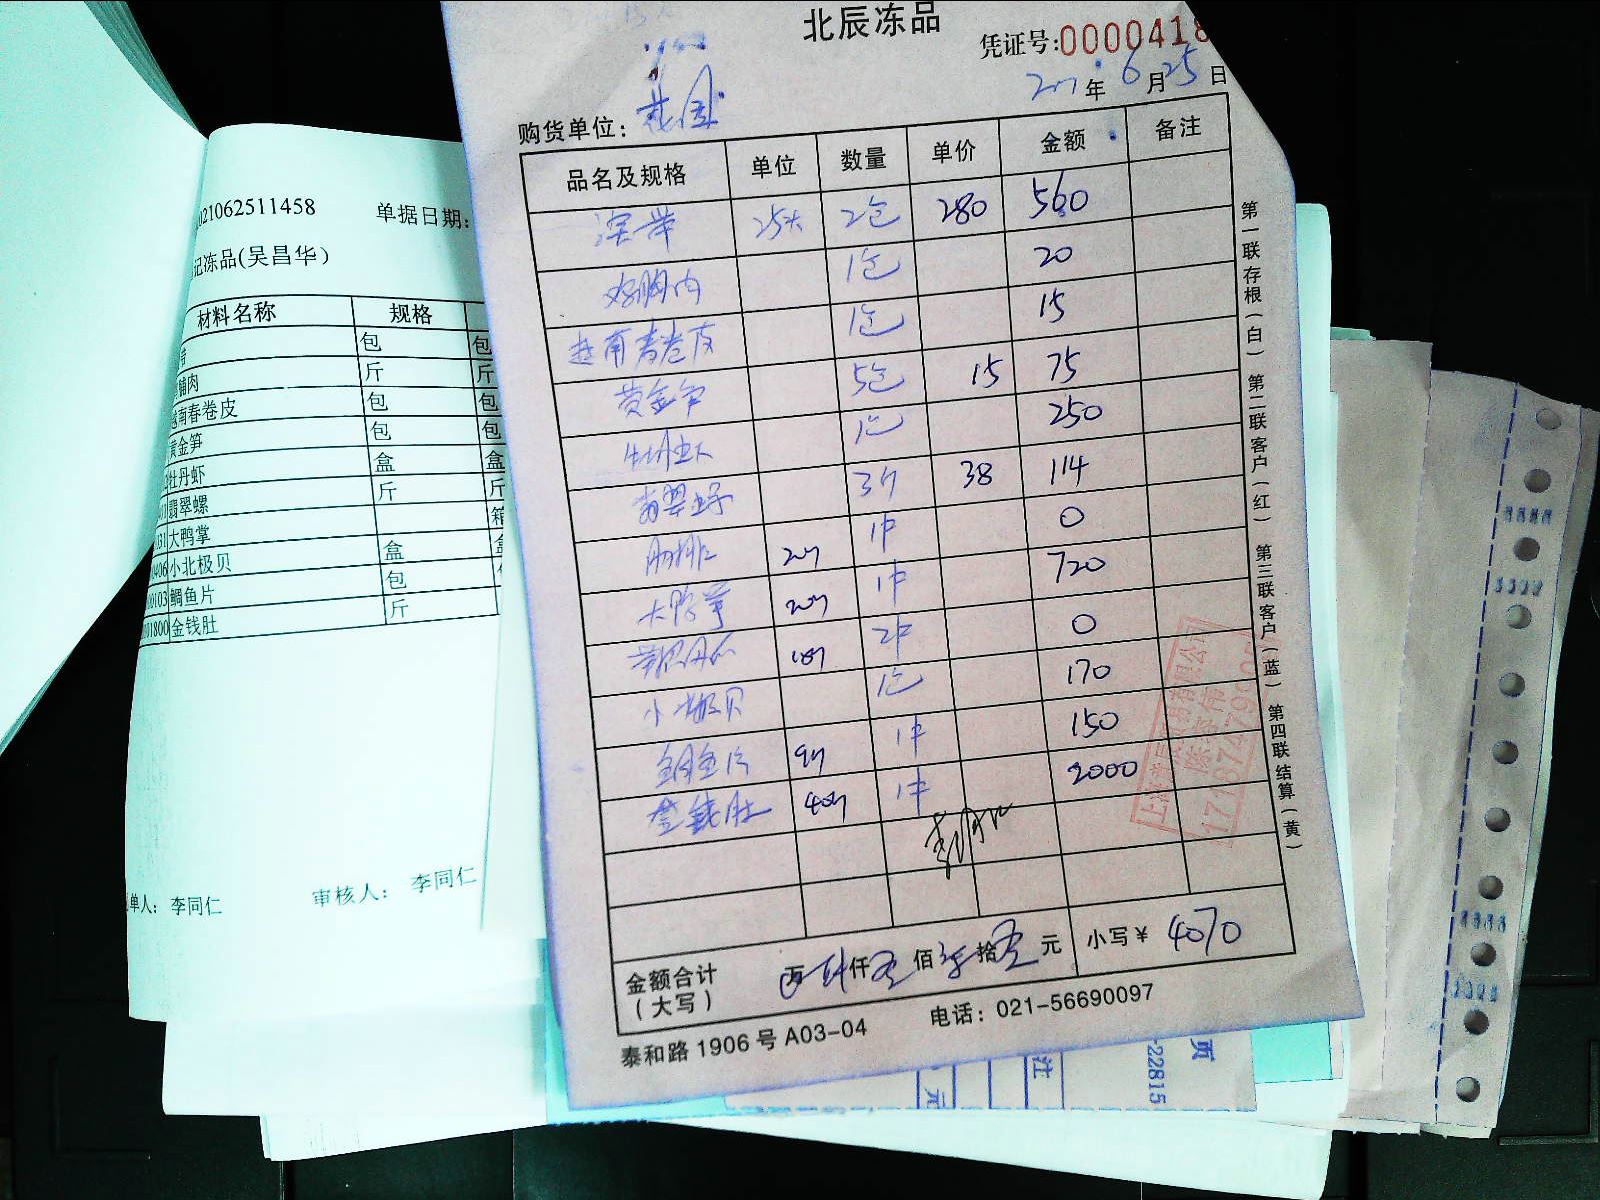 北辰冻品
凭证号:0000418
年 6 月 25 日
购货单位: 花园
品名及规格 单位 数量 单价 金额 备注
2包 280 560
鸡胸肉 1包 20
越南春卷皮 1包 15
黄金笋 5包 15 75
牡丹虾 1包 250
翡翠螺 3斤 38 114
肋排 20斤 1件 0
大鸭掌 20斤 1件 720
2件 0
小北极贝 1包 170
鲷鱼片 9斤 1件 150
金钱肚 40斤 1件 2000
金额合计
(大写)
万 肆仟零佰柒拾零元 小写¥ 4070
泰和路1906号A03-04 电话: 021-56690097
第一联存根(白) 第二联客户(红) 第三联客户(蓝) 第四联结算(黄)
021062511458 单据日期:
记冻品(吴昌华)
材料名称 规格
包 包
脯肉 斤 斤
越南春卷皮 包 包
黄金笋 包 包
牡丹虾 盒 盒
翡翠螺 斤 斤
大鸭掌 箱
小北极贝 盒
鲷鱼片 包
金钱肚 斤
单人: 李同仁 审核人: 李同仁
元
注
页
-22815